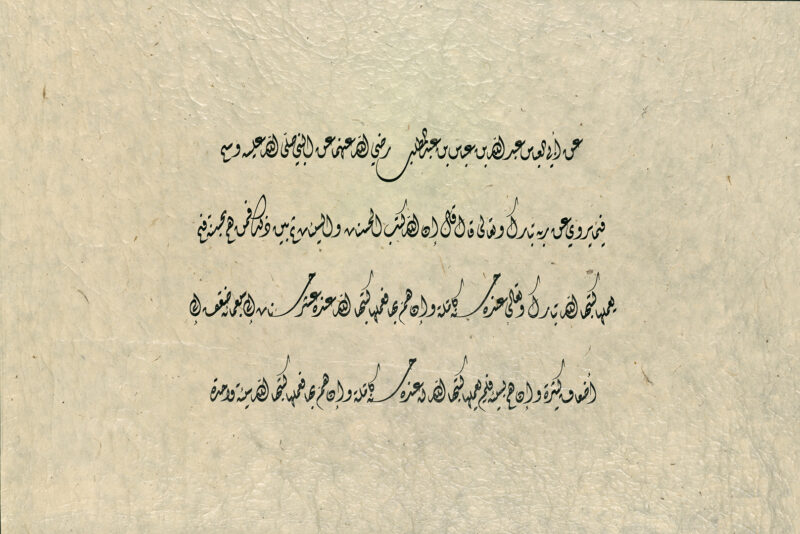 عن أبي العباس عبد الله بن عباس بن عبد المطلب رضي الله عنهما عن النبي صلى الله عليه وسلم
فيما يروي عن ربه تبارك وتعالى قال قال إن الله كتب الحسنات والسيئات ثم بين ذلك فمن هم بحسنة فلم
يعملها كتبها الله تبارك وتعالى عنده حسنة كاملة وإن هم بها فعملها كتبها الله عنده عشر حسنات إلى سبعمائة ضعف إلى
أضعاف كثيرة وإن هم بسيئة فلم يعملها كتبها الله له عنده حسنة كاملة وإن هم بها فعملها كتبها الله سيئة واحدة